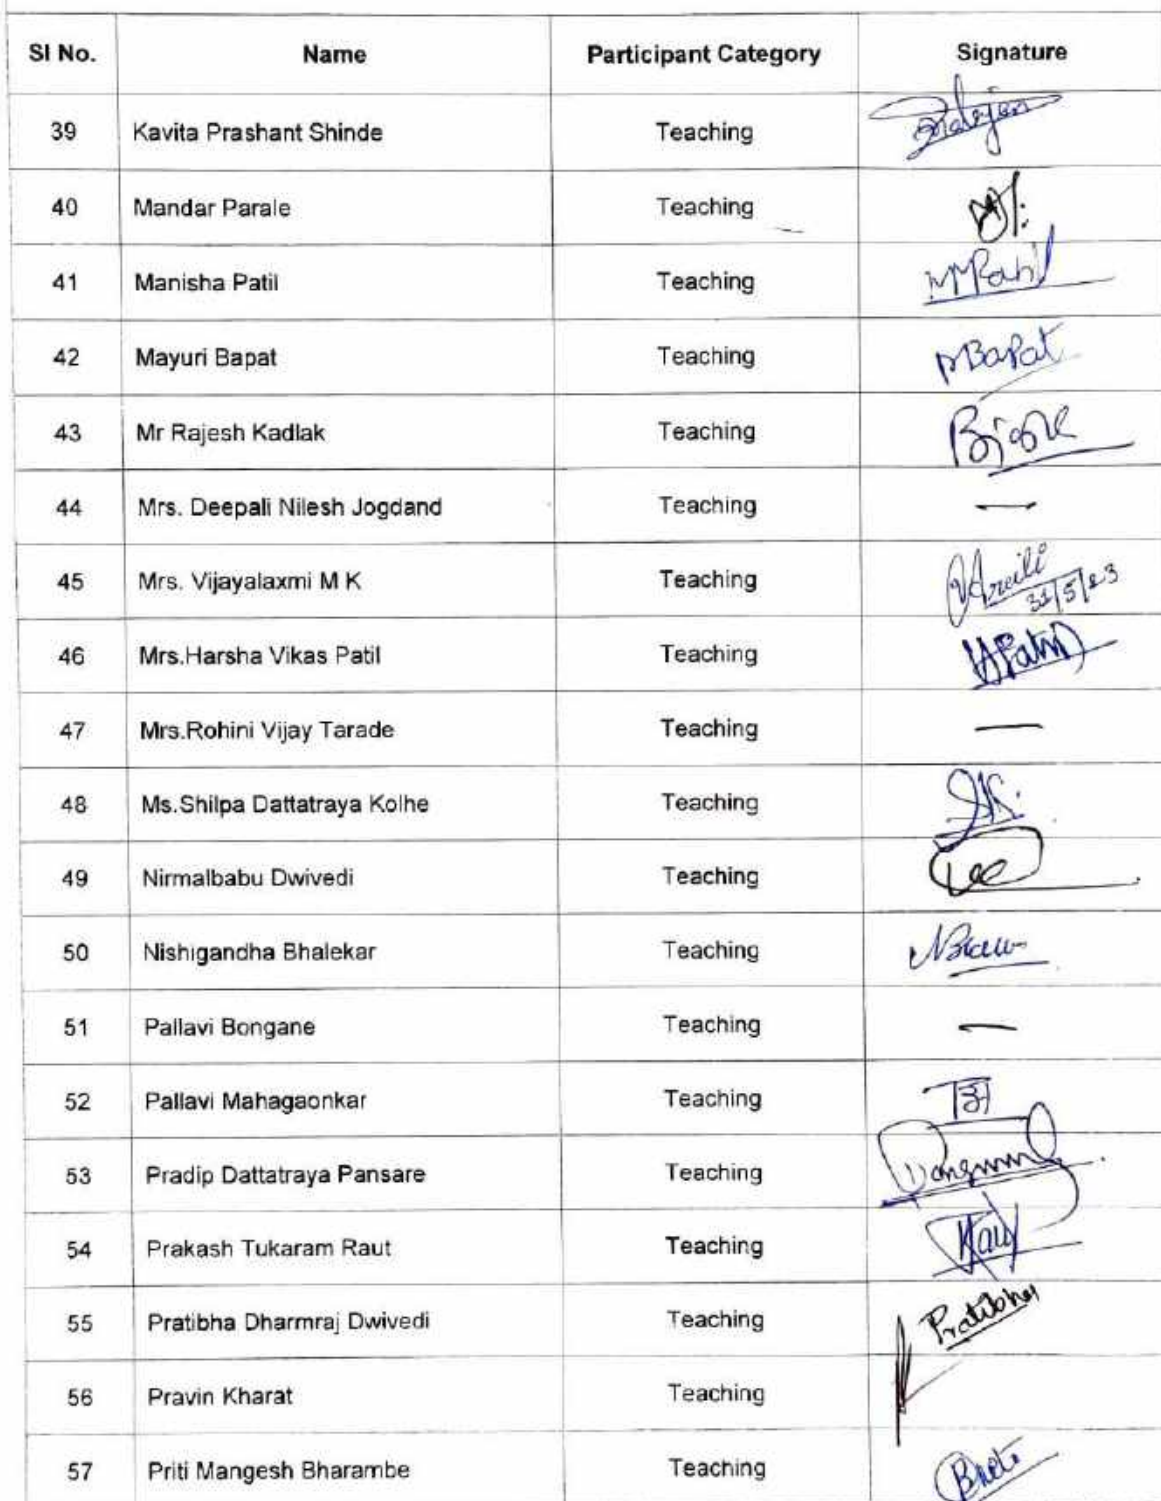 SI No. Name Participant Category Signature
39 Kavita Prashant Shinde Teaching
40 Mandar Parale Teaching
41 Manisha Patil Teaching MPatil
42 Mayuri Bapat Teaching MBapat
43 Mr Rajesh Kadlak Teaching
44 Mrs. Deepali Nilesh Jogdand Teaching —
45 Mrs. Vijayalaxmi M K Teaching 31/5/23
46 Mrs.Harsha Vikas Patil Teaching HPatil
47 Mrs.Rohini Vijay Tarade Teaching —
48 Ms.Shilpa Dattatraya Kolhe Teaching
49 Nirmalbabu Dwivedi Teaching
50 Nishigandha Bhalekar Teaching
51 Pallavi Bongane Teaching —
52 Pallavi Mahagaonkar Teaching
53 Pradip Dattatraya Pansare Teaching
54 Prakash Tukaram Raut Teaching
55 Pratibha Dharmraj Dwivedi Teaching Pratibha
56 Pravin Kharat Teaching
57 Priti Mangesh Bharambe Teaching